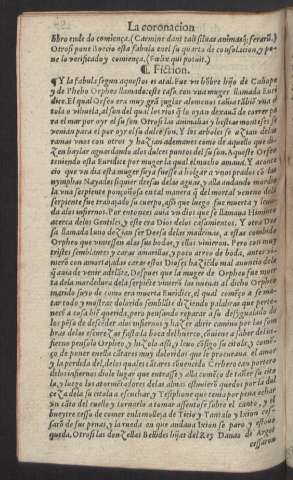 La coronacion
libro ende do comiença. (Carmine dant tali siluas animasq; feras.)
Otrosi pone Boecio esta fabula enel su quarto de consolacion, y po
ne lo versificado y comiença. (Fœlix qui potuit.)
¶ Fiction.
¶ Y la fabula segun aquestos es atal. Fue vn hõbre hijo de Caliope
y de Phebo Orpheo llamado: este caso con vna muger llamada Euri
dice. El qual Orfeo era muy grã juglar demenos tañia
tola o vihuela, al son del qual los rios q̃ lo oyan dexauã de correr pa
ra el mar por oyr el su son Otrosi las animalias y bestias
venian para el por oyr el su dulce son. Y los arboles se dezian
ramas vnos con otros y hazian ademanes como de aquello que
zen baylar aguardando los dulces puntos del su son. Aqueste Orfeo
teniendo esta Euridice por muger la qual el mucho amaua. Y aconte
cio que vn dia esta muger suya fuesse a holgar a vnos prados cõ las
nymphas Nayades siquier deesas delas aguas, y alla andando mordio
la vna serpiente ponçoñosa en tal manera q̃ del mortal veneno dela
serpiente fue trabajado su cuerpo, assi que luego fue muerta y leuada
alos infiernos. Por entonces auia vn dios que se llamaua Himeneo
acerca delos Gentiles, y este era Dios delos casamientos. Y otra Dee
sa llamada Iuno dezian ser Deesa delas madrinas, a estas combido
Orpheo que viniessen alas sus bodas, y ellos vinieron. Pero con muy
tristes semblantes y caras amarillas, y poco arreo de boda, antes
nerõ con amortajadas caras estos Dioses haziẽdo mal anuncio delo
q̃ auia de venir adelãte. Despues que la muger de Orpheo fue muer
ta dela mordedura dela serpiẽte vinierõ las nueuas al dicho Orpheo
marido suyo de como era muerta Euridice, el qual começo a se
tar todo y mostrar dolorido semblãte diziendo palabras que perte
neciã a cosa biẽ querida, pero pensando reparar a su desygualado do
lor pẽso de descẽder alos infiernos y hazer abrir camino por las som
bras delas escurezas fasta la boca del huerco, cõuiene a saber del in
fierno pensolo Orpheo, y hizolo assi, y leuo cõsigo su citola, y comẽ
ço de poner enella cãtares muy doloridos que le procuraua el amor
y la perdida del, delos quales cãtares cõuencido Cerbero con portero
delos infiernos diole lugar que entrasse y alla comẽço de tañer su cito
la, y luego los atormẽtadores delas almas estuuierõ quedos por la dul
çeza dela su citola a escuchar, y Tesiphone que tenia por pena echar
vn cãto del cuello y tornarlo a tomar assentose sobre el canto, y el
bueytre cesso de comer en la molleja de Ticio y Tantalo y Ixion ces
saro de sus penas, y la rueda en que andaua Ixion se paro y estouo
queda. Otrosi las donzellas Belides hijas del Rey Danao de Argos
cessaron